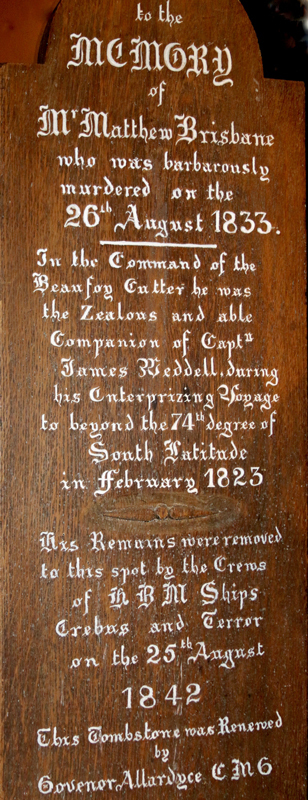 to the
MEMORY
of
Mr Matthew Brisbane
who was barbarously
murdered on the
26th August 1833.
In the Command of the
Beaufoy Cutter he was
the Zealous and able
Companion of Captn
James Weddell, during
his Enterprizing Voyage
to beyond the 74th degree of
South Latitude
in February 1823
His Remains were removed
to this spot by the Crews
of H B M Ships
Erebus and Terror
on the 25th August
1842
This Tombstone was Renewed
by
Govenor Allardyce C M G